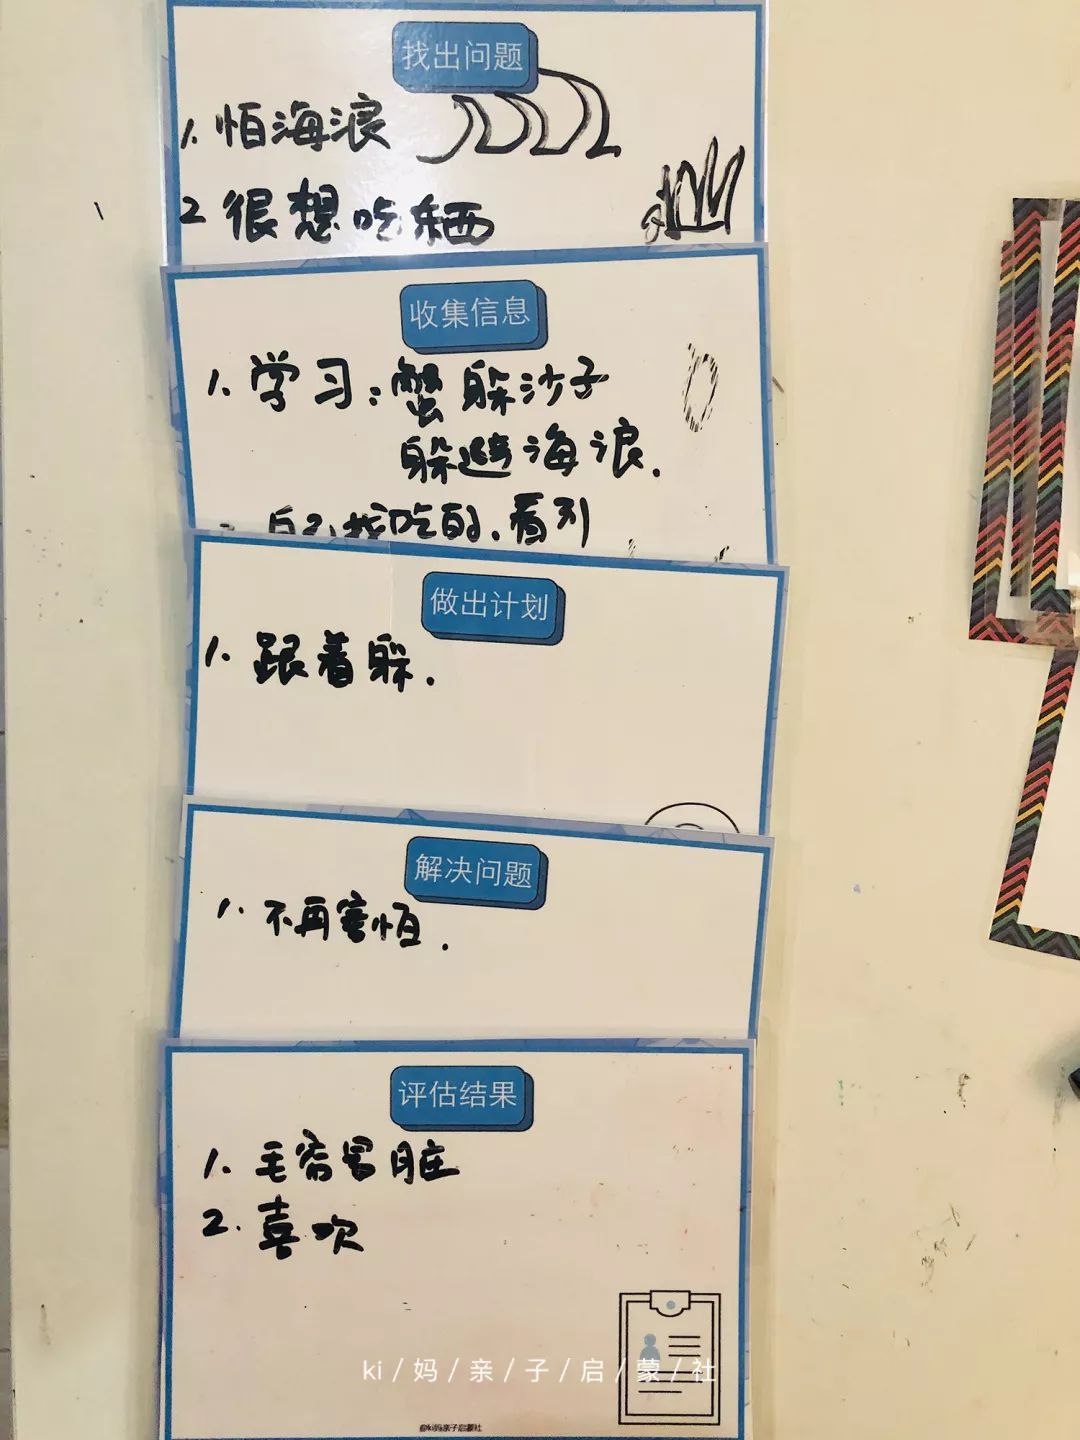 找出问题
1. 怕海浪
2 很想吃东西
收集信息
1. 学习：蟹躲沙子
躲避海浪.
自己找吃的.看到
做出计划
1. 跟着躲.
解决问题
1. 不再害怕.
评估结果
1. 毛容易脏
2. 喜欢
ki/妈/亲/子/启/蒙/社
@ki妈亲子启蒙社